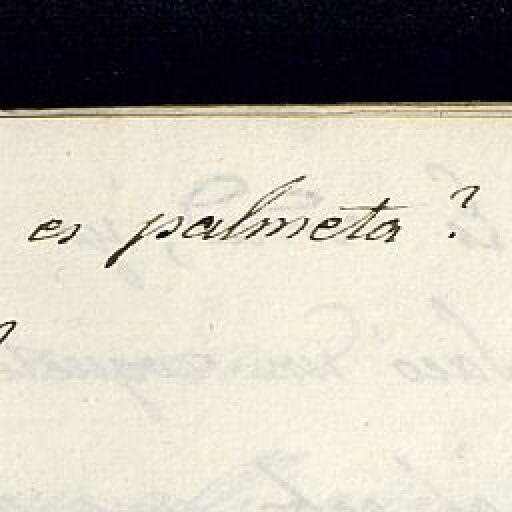 es palmeta ?